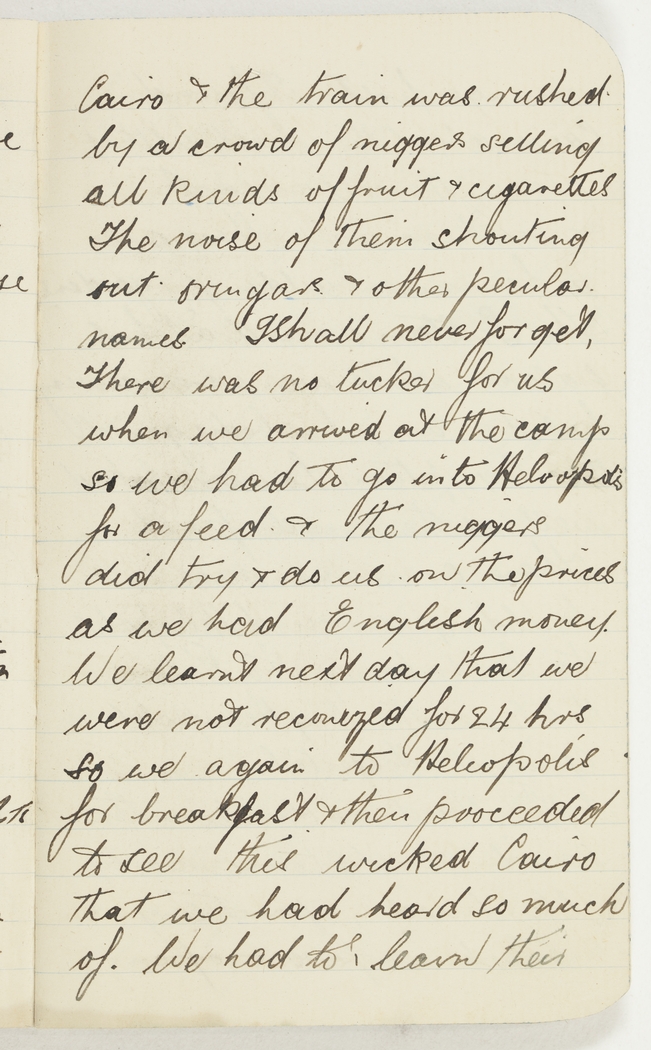 Cairo & the train was rushed
by a crowd of niggers selling
all kinds of fruit & cigarettes
The noise of them shouting
out oringars & other pecular
names I Shall never forget,
There was no tucker for us
when we arrived at the camp
so we had to go into Heloopolis
for a feed. & the niggers
did try & do us on the prices
as we had English money.
We learnt next day that we
were not reconized for 24 hrs
so we again to Heliopolis
for breakfast & then proceeded
to see this wicked Cairo
that we had heard so much
of. We had to learn their